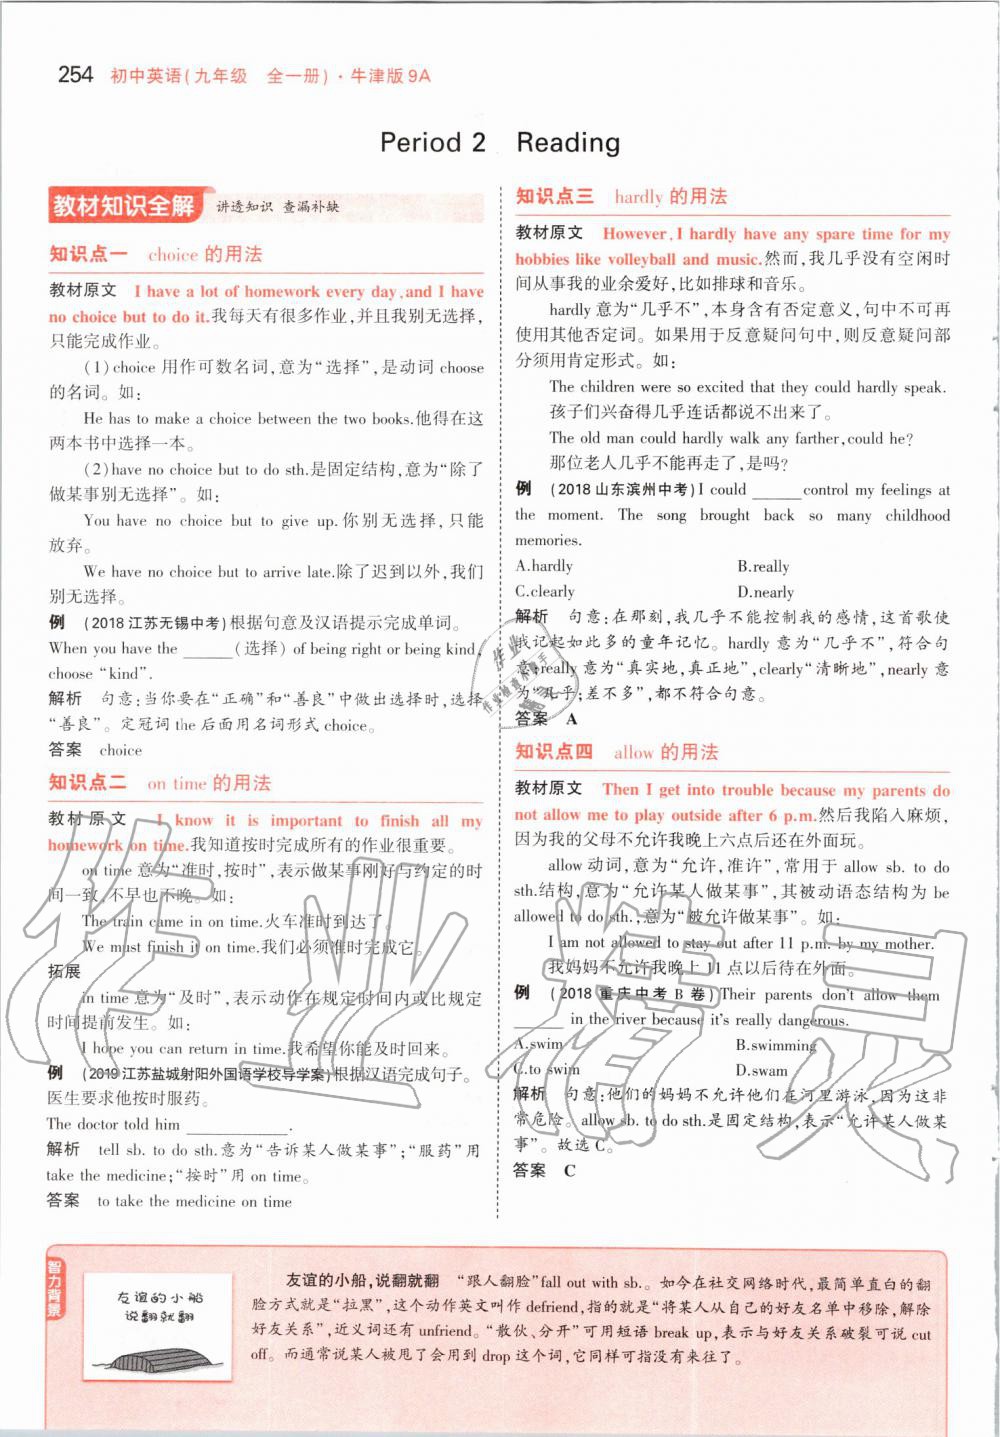 254 初中英语(九年级 全一册)·牛津版9A
Period 2 Reading
教材知识全解 讲透知识 查漏补缺
知识点一 choice 的用法
教材原文 I have a lot of homework every day, and I have
no choice but to do it.我每天有很多作业,并且我别无选择,
只能完成作业。
(1)choice 用作可数名词,意为“选择”,是动词 choose
的名词。如:
He has to make a choice between the two books.他得在这
两本书中选择一本。
(2)have no choice but to do sth.是固定结构,意为“除了
做某事别无选择”。如:
You have no choice but to give up.你别无选择,只能
放弃。
We have no choice but to arrive late.除了迟到以外,我们
别无选择。
例 (2018江苏无锡中考)根据句意及汉语提示完成单词。
When you have the ______(选择) of being right or being kind,
choose “kind”.
解析 句意:当你要在“正确”和“善良”中做出选择时,选择
“善良”。定冠词the后面用名词形式choice。
答案 choice
知识点二 on time 的用法
教材原文 I know it is important to finish all my
homework on time.我知道按时完成所有的作业很重要。
on time 意为“准时,按时”,表示做某事刚好与约定的时
间一致,不早也不晚。如:
The train came in on time.火车准时到达了。
We must finish it on time.我们必须准时完成它。
拓展
in time 意为“及时”,表示动作在规定时间内或比规定
时间提前发生。如:
I hope you can return in time.我希望你能及时回来。
例 (2019江苏盐城射阳外国语学校导学案)根据汉语完成句子。
医生要求他按时服药。
The doctor told him ____________.
解析 tell sb. to do sth.意为“告诉某人做某事”;“服药”用
take the medicine;“按时”用 on time。
答案 to take the medicine on time
知识点三 hardly 的用法
教材原文 However, I hardly have any spare time for my
hobbies like volleyball and music.然而,我几乎没有空闲时
间从事我的业余爱好,比如排球和音乐。
hardly 意为“几乎不”,本身含有否定意义,句中不可再
使用其他否定词。如果用于反意疑问句中,则反意疑问部
分须用肯定形式。如:
The children were so excited that they could hardly speak.
孩子们兴奋得几乎连话都说不出来了。
The old man could hardly walk any farther,could he?
那位老人几乎不能再走了,是吗?
例 (2018山东滨州中考)I could ______control my feelings at
the moment. The song brought back so many childhood
memories.
A.hardly B.really
C.clearly D.nearly
解析 句意:在那刻,我几乎不能控制我的感情,这首歌使
我记起如此多的童年记忆。hardly 意为“几乎不”,符合句
意;really意为“真实地,真正地”,clearly“清晰地”,nearly 意
为“几乎;差不多”,都不符合句意。
答案 A
知识点四 allow 的用法
教材原文 Then I get into trouble because my parents do
not allow me to play outside after 6 p.m.然后我陷入麻烦,
因为我的父母不允许我晚上六点后还在外面玩。
allow 动词,意为“允许,准许”,常用于 allow sb. to do
sth.结构,意为“允许某人做某事”,其被动语态结构为 be
allowed to do sth.,意为“被允许做某事”。如:
I am not allowed to stay out after 11 p.m. by my mother.
我妈妈不允许我晚上11点以后待在外面。
例 (2018重庆中考B卷)Their parents don't allow them
______ in the river because it's really dangerous.
A.swim B.swimming
C.to swim D.swam
解析 句意:他们的妈妈不允许他们在河里游泳,因为这非
常危险。allow sb. to do sth.是固定结构,表示“允许某人做某
事”。故选C。
答案 C
智力背景
友谊的小船
说翻就翻
友谊的小船,说翻就翻 “跟人翻脸”fall out with sb.。如今在社交网络时代,最简单直白的翻
脸方式就是“拉黑”,这个动作英文叫作 defriend,指的就是“将某人从自己的好友名单中移除,解除
好友关系”,近义词还有 unfriend。“散伙、分开”可用短语 break up,表示与好友关系破裂可说 cut
off。而通常说某人被甩了会用到 drop 这个词,它同样可指没有来往了。
作业精灵